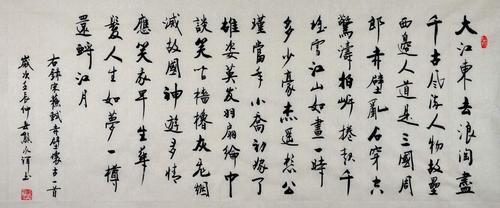 大江東去浪淘盡
千古風流人物故壘
西邊人道是三國周
郎赤壁亂石穿空
驚濤拍岸捲起千
堆雪江山如畫一時
多少豪杰遥想公
瑾當年小喬初嫁了
雄姿英发羽扇綸巾
談笑間檣櫓灰飛烟
滅故國神遊多情
應笑我早生華
髮人生如夢一樽
還酹江月
右錄宋蘇軾赤壁懷古一首
歲次壬辰仲